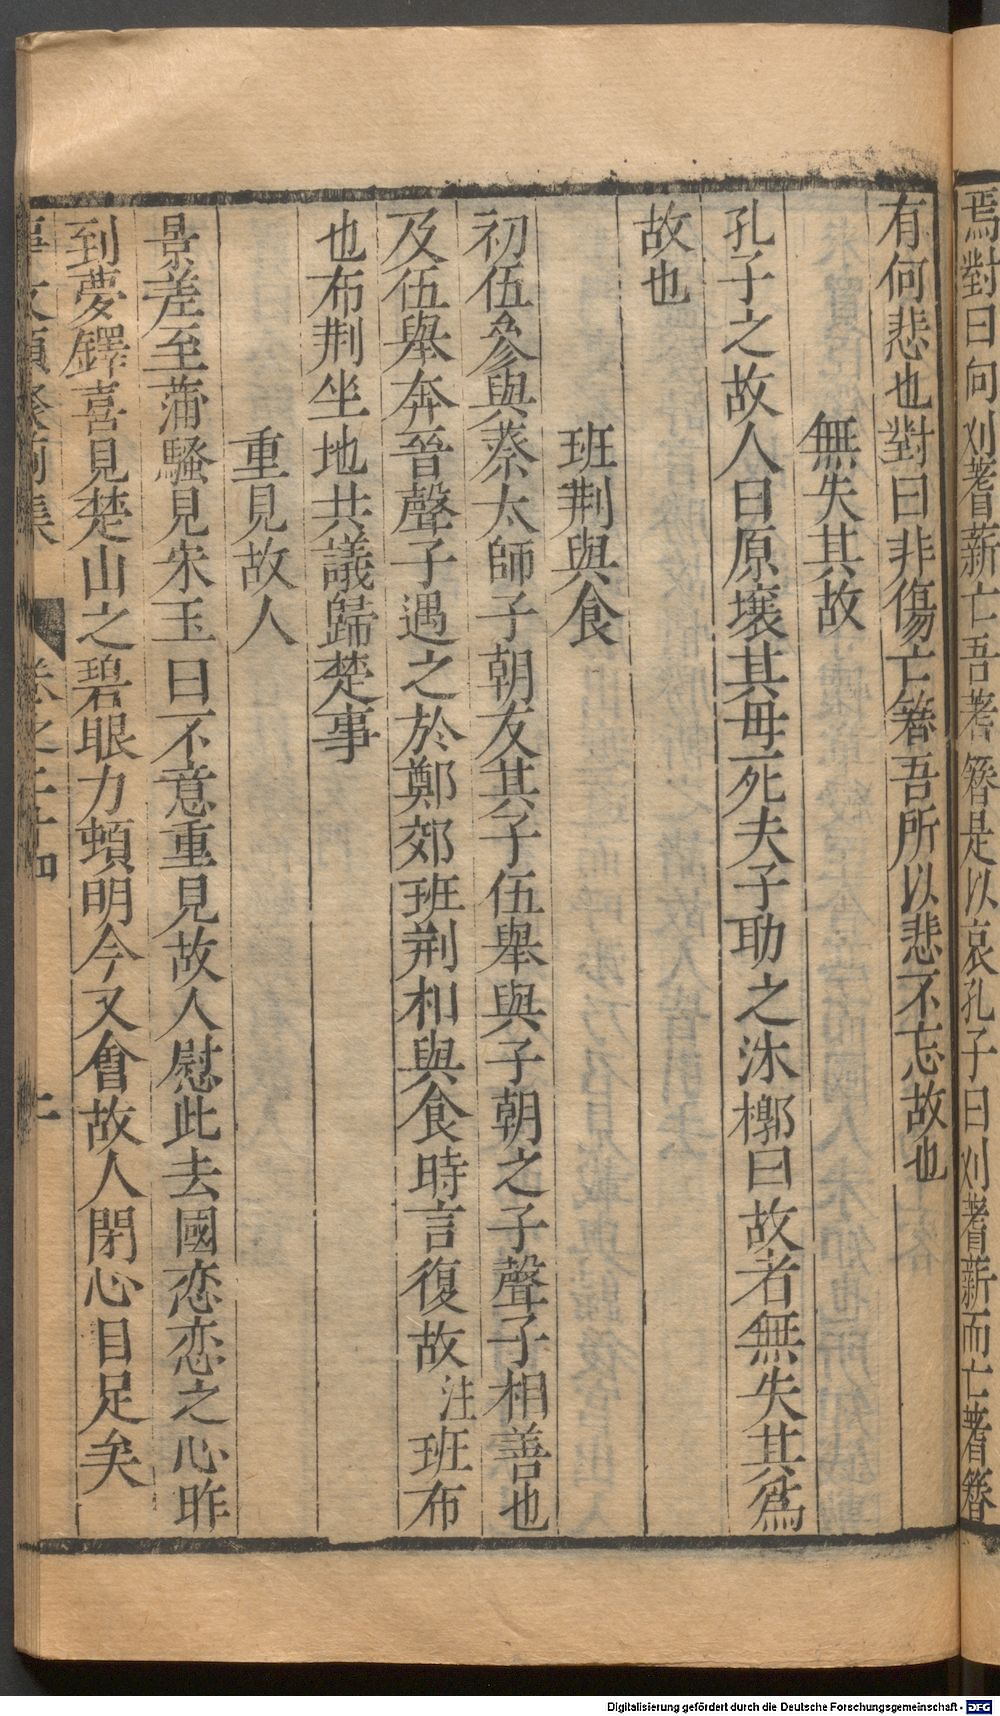 焉對曰向刈蓍薪亡吾蓍簪是以哀孔子曰刈蓍薪而亡蓍簪
有何悲也對曰非傷亡簪吾所以悲不忘故也
無失其故
孔子之故人曰原壤其母死夫子助之沐槨曰故者無失其爲
故也
班荆與食
初伍參與蔡太師子朝友其子伍舉與子朝之子聲子相善也
及伍舉奔晉聲子遇之於鄭郊班荆相與食時言復故注班布
也布荆坐地共議歸楚事
重見故人
景差至蒲騷見宋玉曰不意重見故人慰此去國恋恋之心昨
到夢鐸喜見楚山之碧眼力頓明今又會故人閉心目足矣
事文類聚前集 卷之二十四
Digitalisierung gefördert durch die Deutsche Forschungsgemeinschaft - DFG